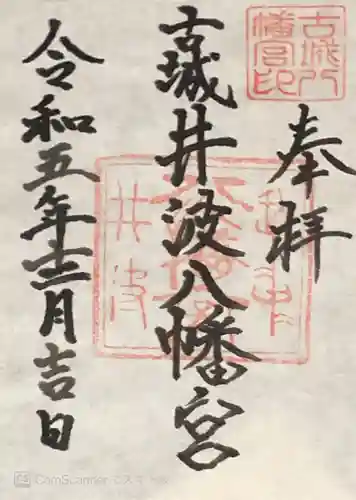 奉拝
古城井波八幡宮
令和五年十二月吉日
古城八幡宮印
CamScanner でスキャン